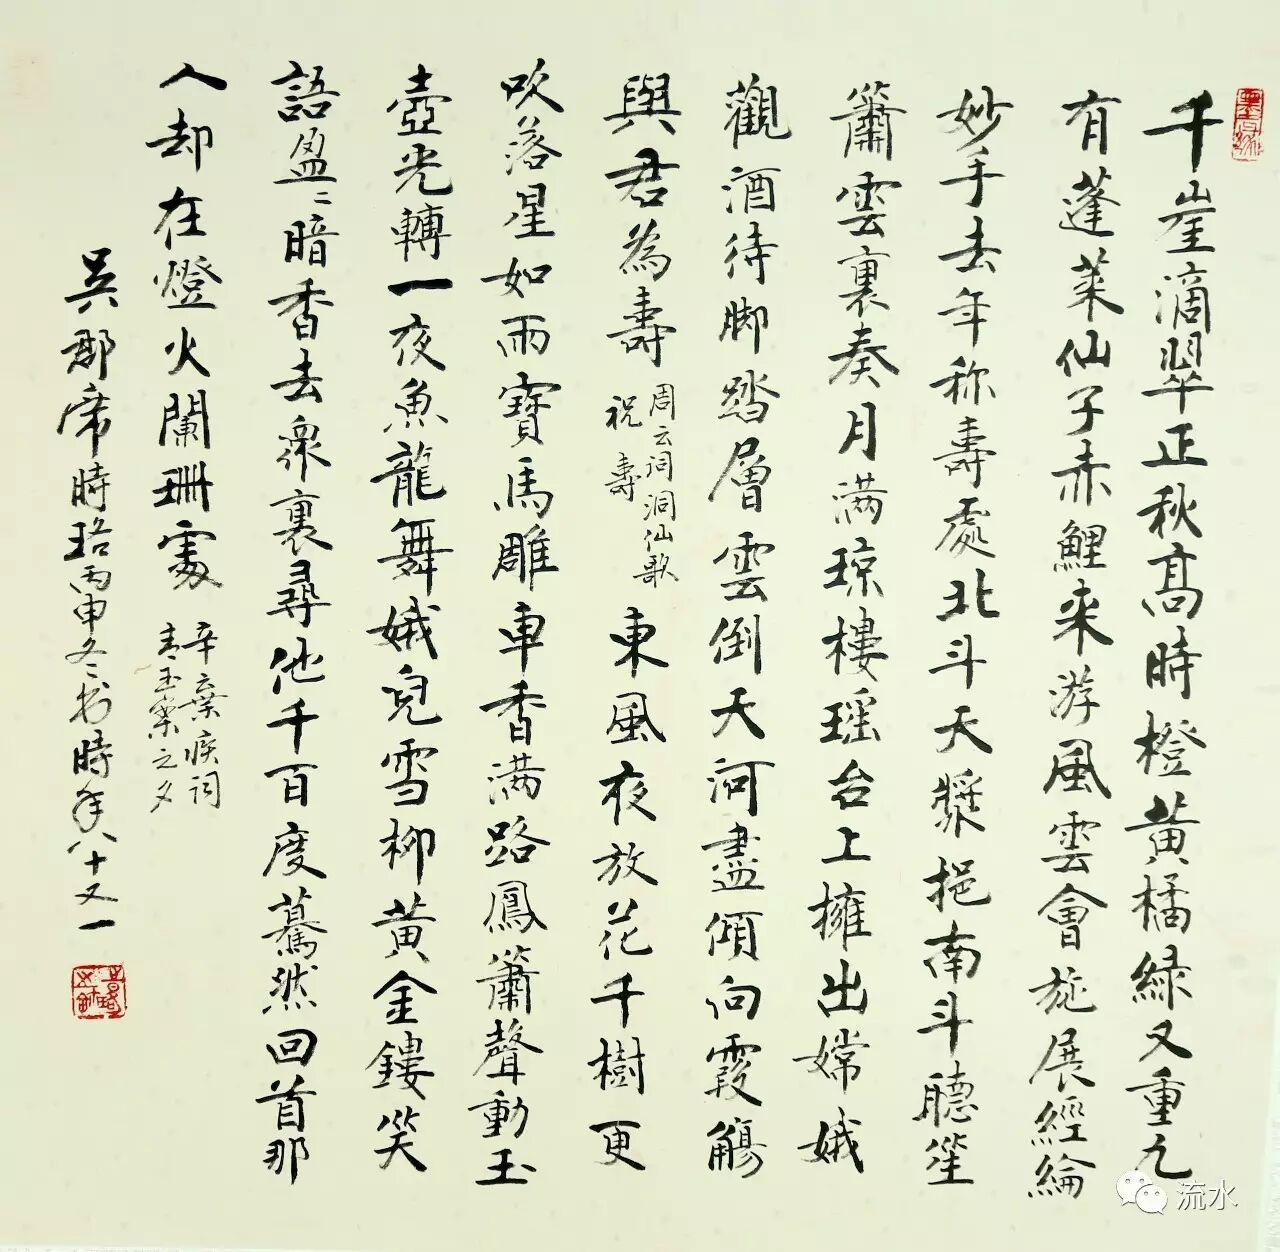 千崖滴翠正秋高時橙黄橘緑又重九
有蓬萊仙子赤鯉来游風雲會施展經綸
妙手去年称壽處北斗天漿挹南斗聽笙
簫雲裏奏月满琼樓瑶台上擁出嫦娥
觀酒待脚踏層雲倒天河盡傾向霞觴
與君為壽
周云词洞仙歌
祝壽
東風夜放花千樹更
吹落星如雨寶馬雕車香满路鳳簫聲動玉
壺光轉一夜魚龍舞娥兒雪柳黄金鏤笑
語盈〻暗香去衆裏尋他千百度驀然回首那
人却在燈火闌珊處
辛棄疾词
青玉案之夕
吴郡席時珞丙申冬书時年八十又一
流水